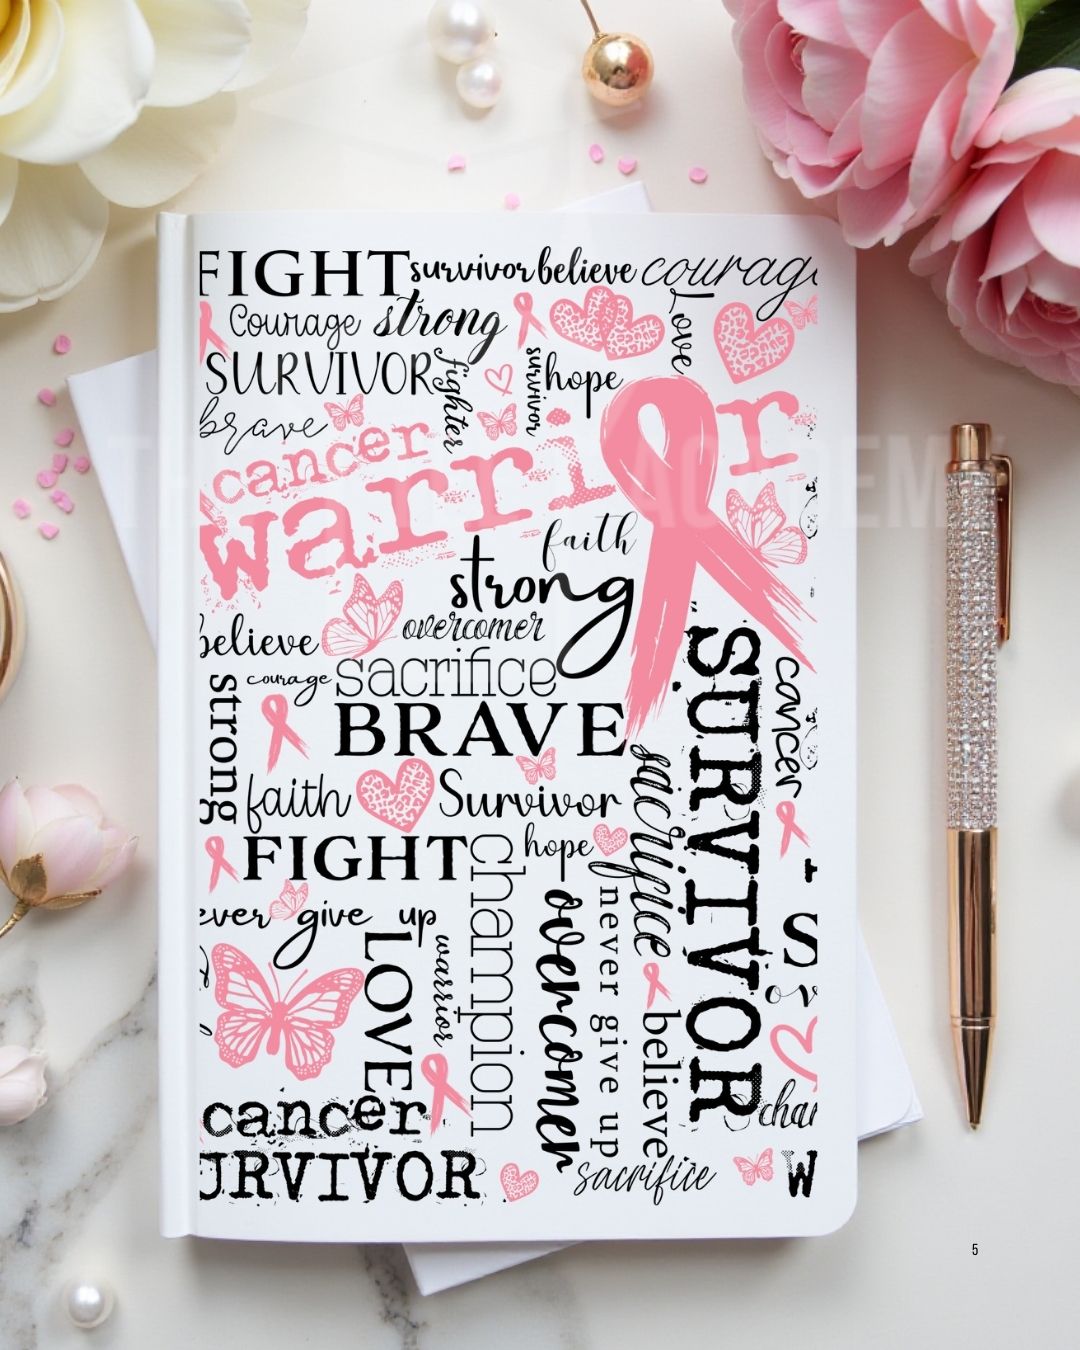 FIGHT survivor believe courage
Courage strong Love
SURVIVOR fighter survivor hope
brave
cancer
warrior
faith
strong
believe overcomer
courage sacrifice
strong BRAVE
SURVIVOR cancer
faith Survivor
sacrifice
FIGHT champion hope
ever give up
overcomer never give up
LOVE warrior believe
cancer
URVIVOR sacrifice
S
char
W
5